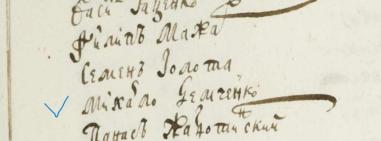 Васи Гаценко
Филипъ Мажа
Семенъ Золота
Михайло Семченко
Панасъ Жаботинский